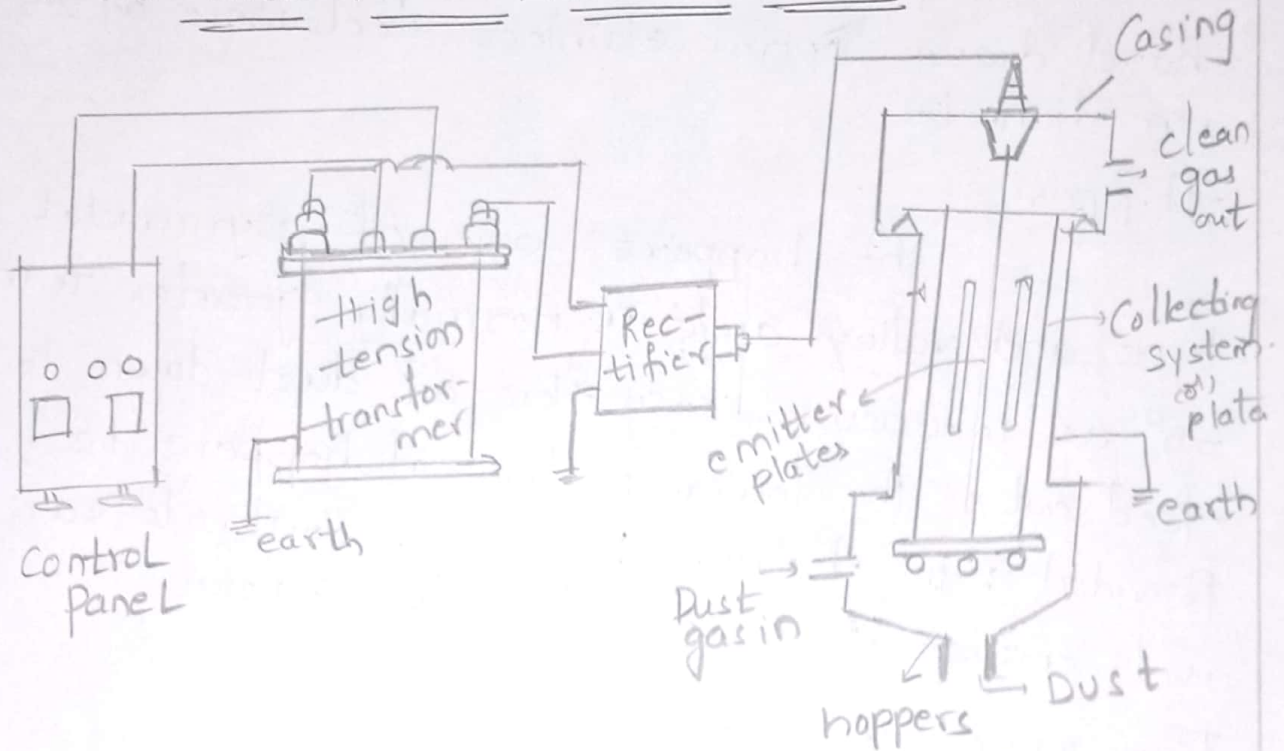 Casing
clean
gas
out
High
tension
transfor-
mer
Rec-
tifier
Collecting
system
(or)
plate
emitter
plates
earth
earth
Control
Panel
Dust
gas in
Dust
hoppers